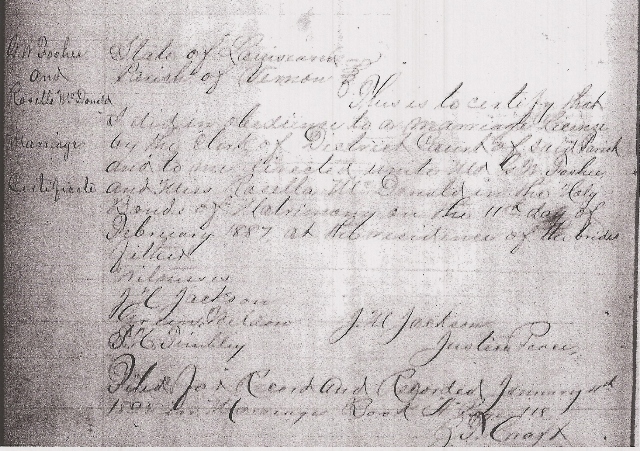 G W Foshee
and
Rosella McDonald
Marriage
Certificate
State of Louisiana
Parish of Vernon
This is to certify that
I did in obedience to a marriage license
by the Clerk of District Court of said Parish
and to me directed unite Mr G W Foshee
and Miss Rosella McDonald in the Holy
Bonds of Matrimony on the 11th day of
February 1887 at the residence of the brides
father
Witnesses
J H Jackson
Weldon
J. H. Jackson
Justice Peace
Filed for Record and Recorded January
in Marriage Book
Craft